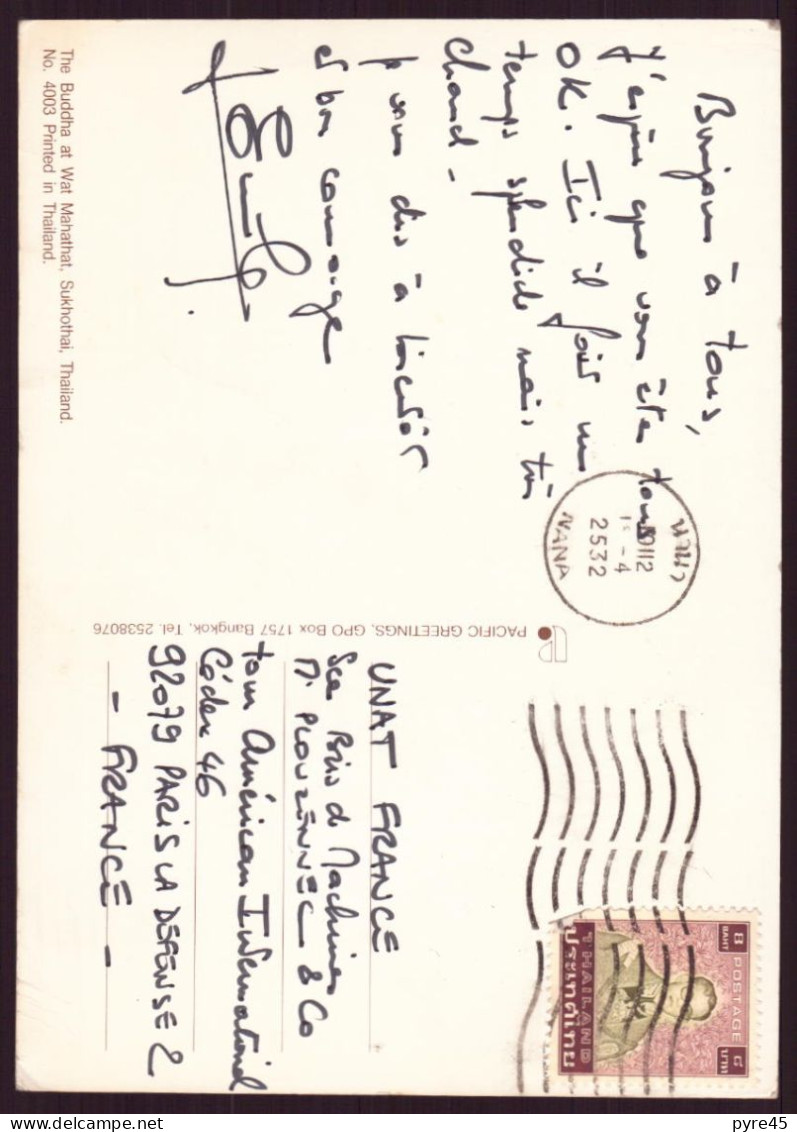 Bonjour à tous,
j'espère que vous êtes tous
OK. Ici il fait un
temps splendide mais très
chaud -
je vous dis à bientôt
et bon courage
The Buddha at Wat Mahathat, Sukhothai, Thailand.
No. 4003 Printed in Thailand.
PACIFIC GREETINGS, GPO Box 1757 Bangkok, Tel. 2538076
นานา
10112
-4
2532
NANA
UNAT FRANCE
Sce Bris de Machines
M. PLOUZENNEC & Co
tour Américan International
Cédex 46
92079 PARIS LA DEFENSE 2
- FRANCE -
8 POSTAGE ๘
BAHT บาท
THAILAND
ประเทศไทย
pyre45